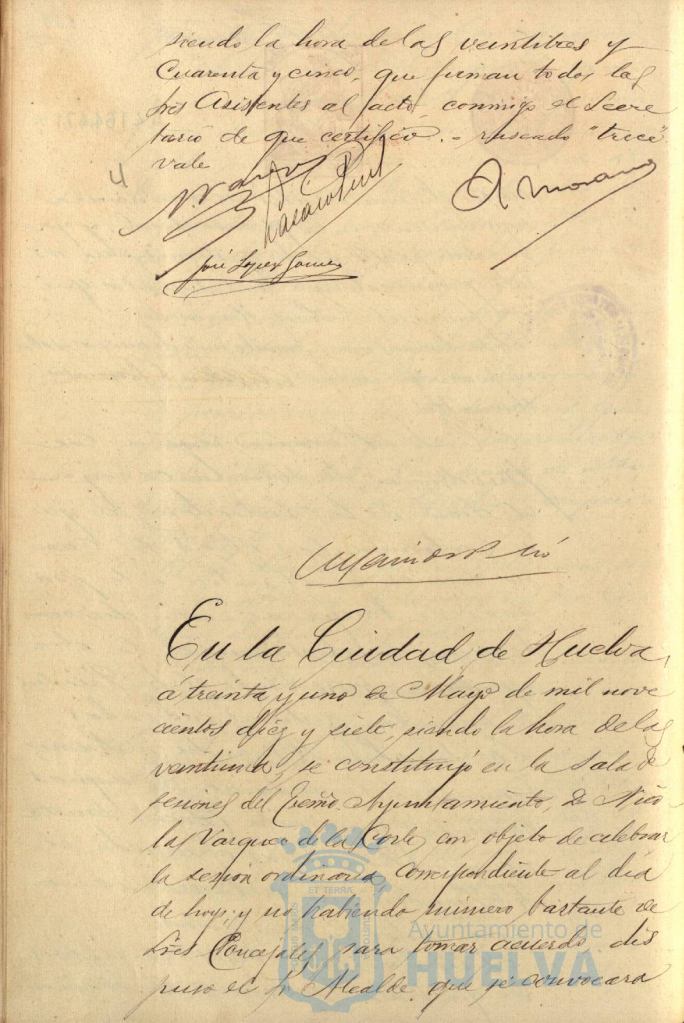 siendo la hora de las veintitres y
Cuarenta y cinco, que firman todos los
Sres Asistentes al acto conmigo el Secre
tario de que certifico. = raspado "trece"
vale
4
A Moreno
José Lopez Gomez
En la Ciudad de Huelva,
á treinta y uno de Mayo de mil nove
cientos diez y siete, siendo la hora de las
veintiuna, se constituyó en la Sala de
sesiones del Excmo Ayuntamiento, D Nico
las Vazquez de la Corte, con objeto de celebrar
la sesion ordinaria correspondiente al dia
de hoy; y no habiendo número bastante de
Sres Concejales para tomar acuerdo dis
puso el Sr Alcalde que se convocara
ET TERRAE
Ayuntamiento de
HUELVA